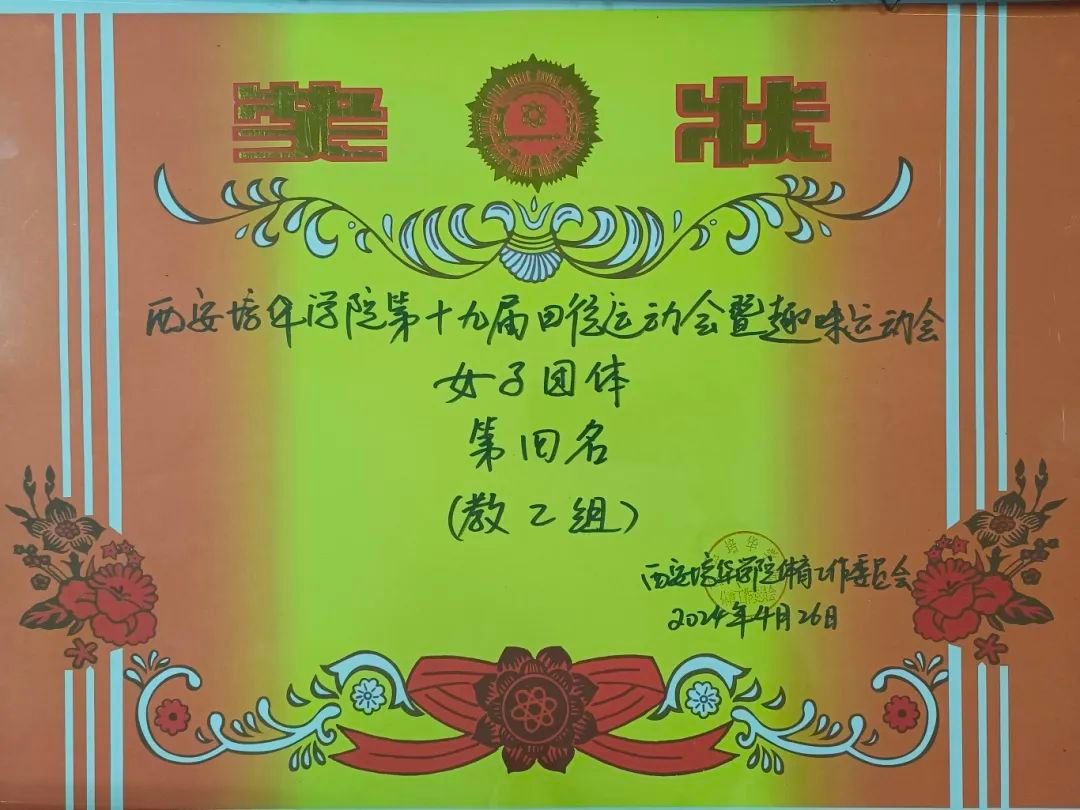 奖 状
西安培华学院第十九届田径运动会暨趣味运动会
女子团体
第四名
(教乙组)
西安培华学院体育工作委员会
2024年4月26日